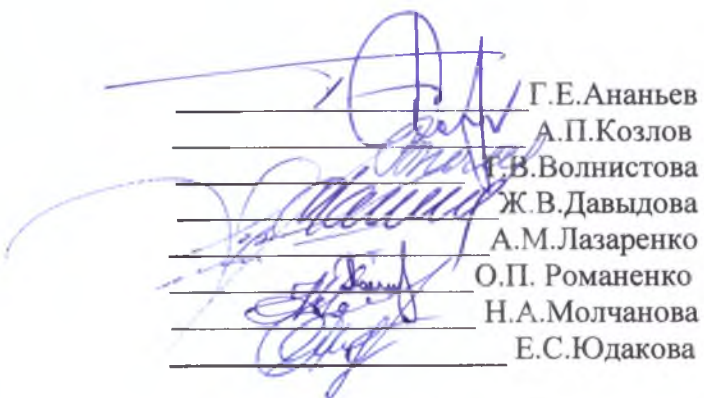 Г.Е.Ананьев
А.П.Козлов
В.Волнистова
Ж.В.Давыдова
А.М.Лазаренко
О.П. Романенко
Н.А.Молчанова
Е.С.Юдакова